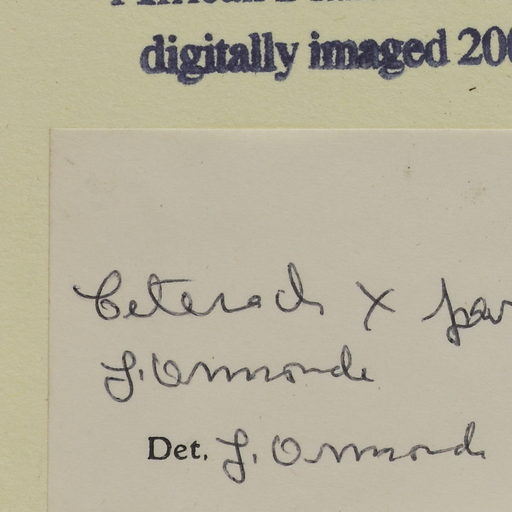 digitally imaged 200
Ceterach × par
J. Ormonde
Det. J. Ormonde